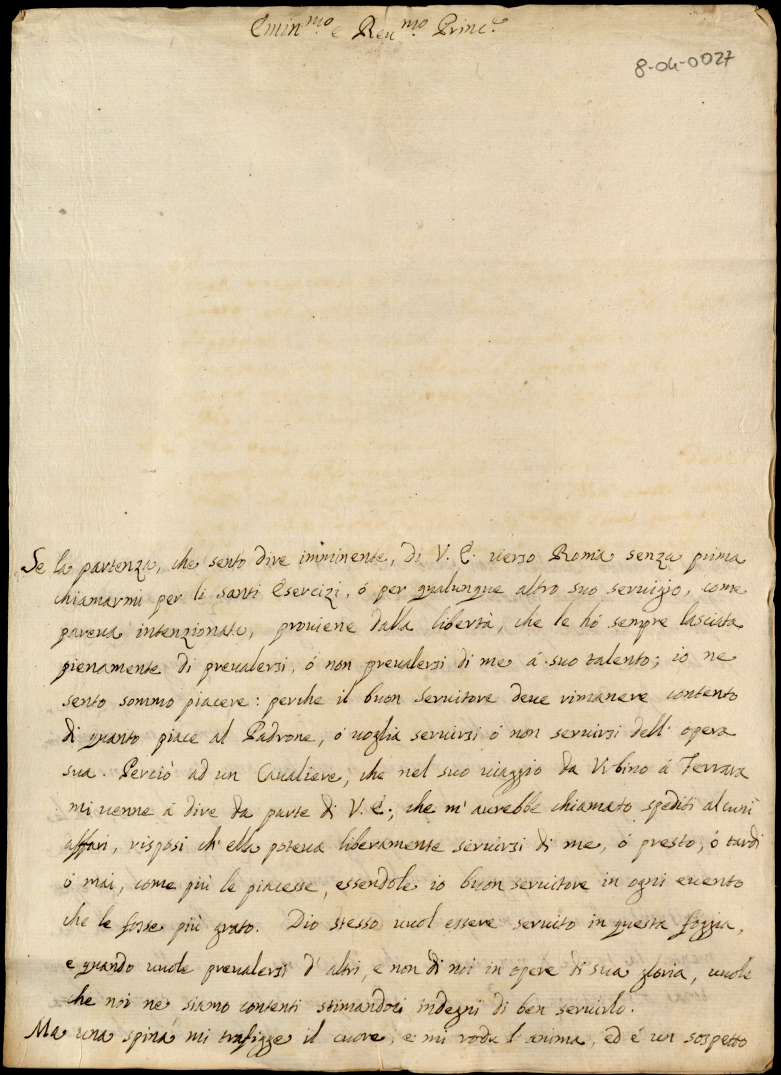 Emin.mo e Reu.mo Princ.e
8-04-0027
Se la partenza, che sento dire imminente, di V. E. uerso Roma senza prima
chiamarmi per li santi Esercizi, ó per qualunque altro suo seruizio, come
pareua intenzionata, prouiene dalla libertà, che le hó sempre lasciata
pienamente di preualersi, ó non preualersi di me á suo talento; io ne
sento sommo piacere: perche il buon seruitore deue rimanere contento
di quanto piace al Padrone, ó uoglia seruirsi ó non seruirsi dell' opera
sua. Perciò ad un Caualiere, che nel suo uiaggio da Vrbino á Ferrara
mi uenne á dire da parte di V. E., che m' aurebbe chiamato spediti alcuni
affari, risposi ch' ella poteua liberamente seruirsi di me, ó presto, ó tardi
ó mai, come più le piacesse, essendole io buon seruitore in ogni euento
che le fosse più grato. Dio stesso uuol essere seruito in questa foggia,
e quando uuole preualersi d' altri, e non di noi in opere di sua gloria, uuole
che noi ne siamo contenti stimandoci indegni di ben seruirlo.
Ma una spina mi trafigge il cuore, e mi rode l' anima, ed é un sospetto